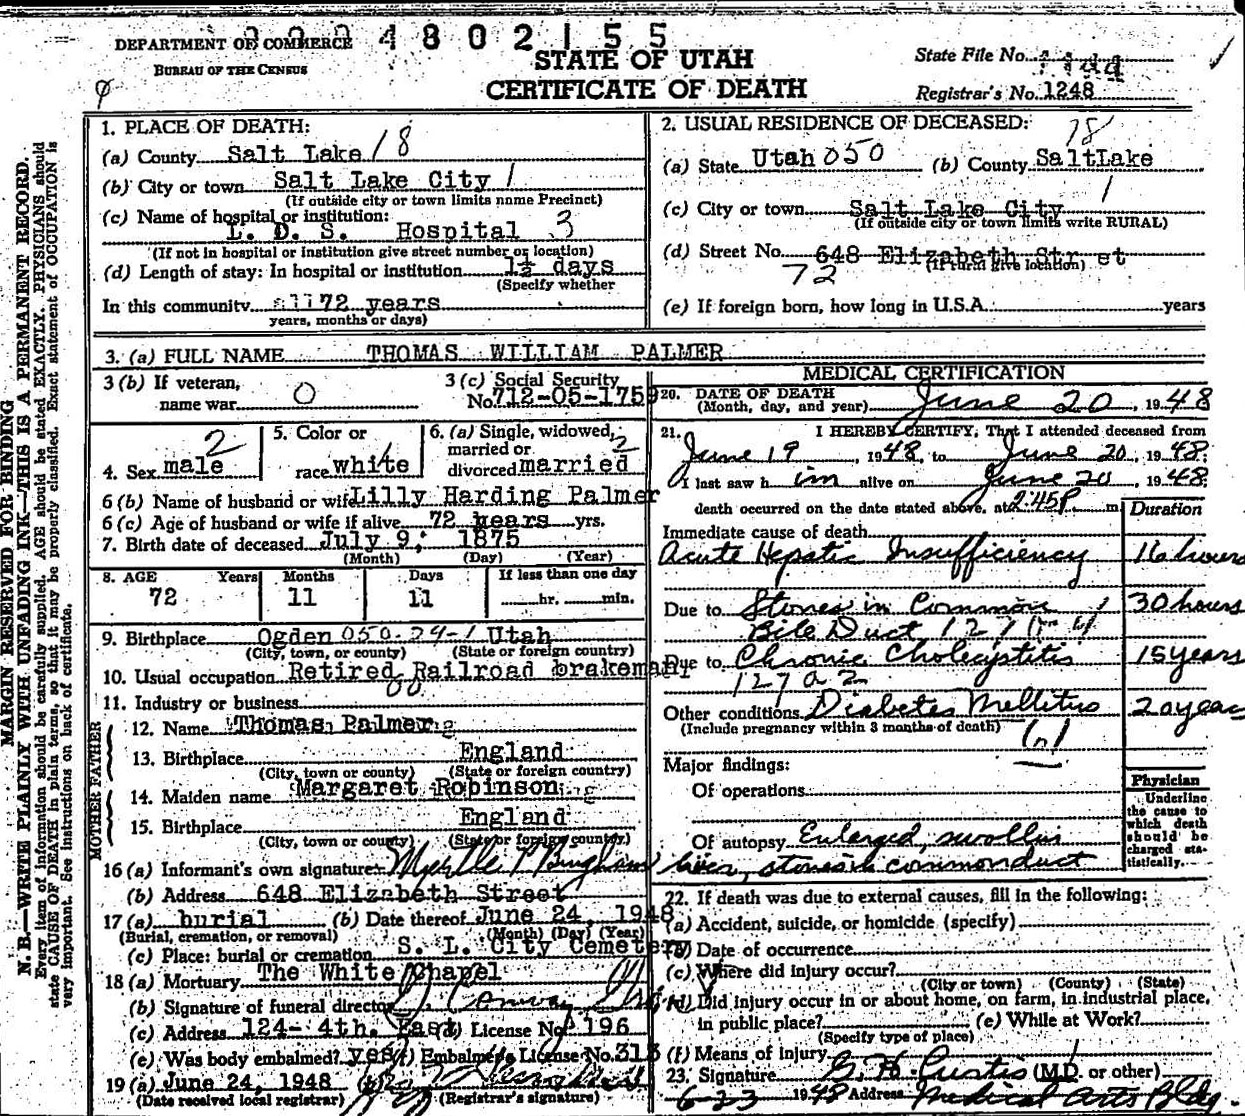 4802155
DEPARTMENT OF COMMERCE
BUREAU OF THE CENSUS
STATE OF UTAH
CERTIFICATE OF DEATH
State File No.
Registrar's No. 1248
MARGIN RESERVED FOR BINDING
N. B.—WRITE PLAINLY WITH UNFADING INK—THIS IS A PERMANENT RECORD.
Every item of information should be carefully supplied. AGE should be stated EXACTLY. PHYSICIANS should
state CAUSE OF DEATH in plain terms, so that it may be properly classified. Exact statement of OCCUPATION is
very important. See instructions on back of certificate.
1. PLACE OF DEATH:
(a) County Salt Lake 18
(b) City or town Salt Lake City 1
(If outside city or town limits name Precinct)
(c) Name of hospital or institution:
L. D. S. Hospital 3
(If not in hospital or institution give street number or location)
(d) Length of stay: In hospital or institution 1½ days
(Specify whether
In this community all 72 years
years, months or days)
2. USUAL RESIDENCE OF DECEASED:
18
(a) State Utah 050 (b) County SaltLake
1
(c) City or town Salt Lake City
(If outside city or town limits write RURAL)
(d) Street No. 648 Elizabeth Street
(If rural give location)
72
(e) If foreign born, how long in U.S.A. years
3. (a) FULL NAME THOMAS WILLIAM PALMER
3 (b) If veteran,
name war O
3 (c) Social Security
No. 712-05-1759
4. Sex male 2
5. Color or
race white 1
6. (a) Single, widowed,
married or 2
divorced married
6 (b) Name of husband or wife Lilly Harding Palmer
6 (c) Age of husband or wife if alive 72 years yrs.
7. Birth date of deceased July 9, 1875
(Month) (Day) (Year)
8. AGE Years Months Days If less than one day
72 11 11 hr. min.
9. Birthplace Ogden 050-29-1 Utah
(City, town, or county) (State or foreign country)
10. Usual occupation Retired Railroad brakeman
11. Industry or business
FATHER
12. Name Thomas Palmer
13. Birthplace England
(City, town or county) (State or foreign country)
MOTHER
14. Maiden name Margaret Robinson
15. Birthplace England
(City, town or county) (State or foreign country)
16 (a) Informant's own signature Myrtle P Bingham
(b) Address 648 Elizabeth Street
17 (a) burial (b) Date thereof June 24, 1948
(Burial, cremation, or removal) (Month) (Day) (Year)
(c) Place: burial or cremation S. L. City Cemetery
18 (a) Mortuary The White Chapel
(b) Signature of funeral director
(c) Address 124- 4th. East (d) License No. 196
(e) Was body embalmed? yes (f) Embalmers License No. 313
19 (a) June 24, 1948 (b)
(Date received local registrar) (Registrar's signature)
MEDICAL CERTIFICATION
20. DATE OF DEATH
(Month, day, and year) June 20, 1948
21. I HEREBY CERTIFY, That I attended deceased from
June 19 1948, to June 20, 1948.
I last saw him alive on June 20, 1948.
death occurred on the date stated above, at 2:45 P. m
Duration
Immediate cause of death
Acute Hepatic Insufficiency 16 hours
Due to Stones in Common 30 hours
Bile Duct 127
Due to Chronic Cholecystitis 15 years
127 a 2
Other conditions Diabetes Mellitus 20 years
(Include pregnancy within 3 months of death)
Major findings:
Of operations
Of autopsy Enlarged, swollen
liver, stones in common duct
Physician
Underline
the cause to
which death
should be
charged sta-
tistically.
22. If death was due to external causes, fill in the following:
(a) Accident, suicide, or homicide (specify)
(b) Date of occurrence
(c) Where did injury occur?
(City or town) (County) (State)
(d) Did injury occur in or about home, on farm, in industrial place,
in public place? (e) While at Work?
(Specify type of place)
(f) Means of injury
23. Signature G. H. Curtis (M.D. or other)
6-23 1948 Address Medical Arts Bldg.